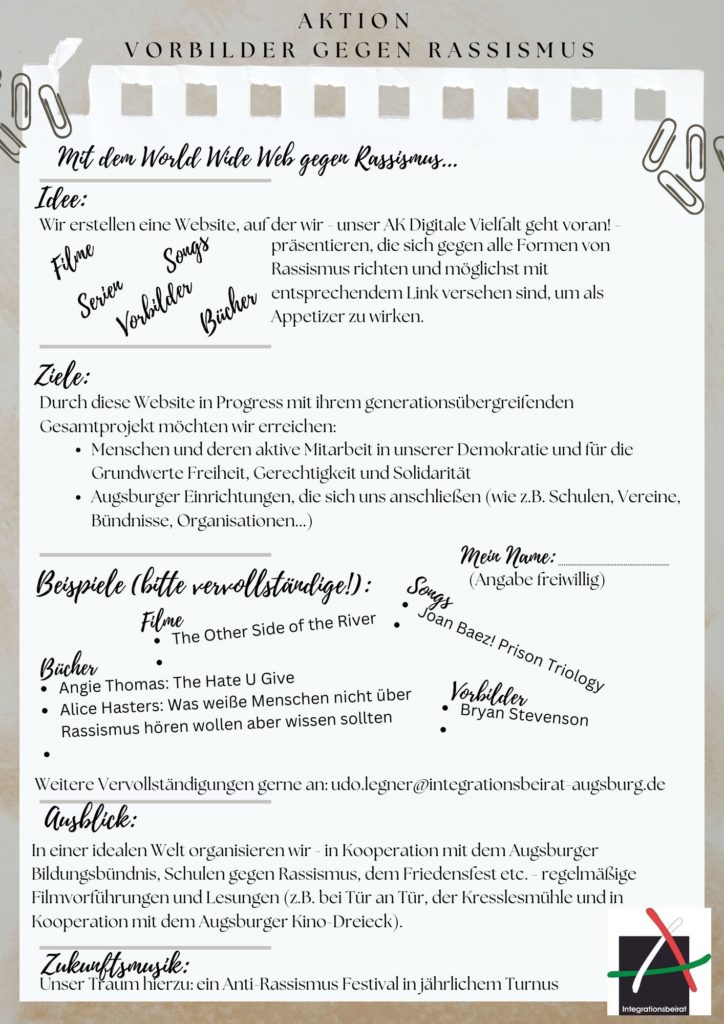 AKTION
VORBILDER GEGEN RASSISMUS
Mit dem World Wide Web gegen Rassismus...
Idee:
Wir erstellen eine Website, auf der wir - unser AK Digitale Vielfalt geht voran! -
Filme
Songs
Serien
Vorbilder
Bücher
präsentieren, die sich gegen alle Formen von
Rassismus richten und möglichst mit
entsprechendem Link versehen sind, um als
Appetizer zu wirken.
Ziele:
Durch diese Website in Progress mit ihrem generationsübergreifenden
Gesamtprojekt möchten wir erreichen:
• Menschen und deren aktive Mitarbeit in unserer Demokratie und für die
Grundwerte Freiheit, Gerechtigkeit und Solidarität
• Augsburger Einrichtungen, die sich uns anschließen (wie z.B. Schulen, Vereine,
Bündnisse, Organisationen...)
Mein Name: ____________
(Angabe freiwillig)
Beispiele (bitte vervollständige!):
Filme
• The Other Side of the River
•
Songs
• Joan Baez! Prison Triology
•
Bücher
• Angie Thomas: The Hate U Give
• Alice Hasters: Was weiße Menschen nicht über
Rassismus hören wollen aber wissen sollten
•
Vorbilder
• Bryan Stevenson
•
Weitere Vervollständigungen gerne an: udo.legner@integrationsbeirat-augsburg.de
Ausblick:
In einer idealen Welt organisieren wir - in Kooperation mit dem Augsburger
Bildungsbündnis, Schulen gegen Rassismus, dem Friedensfest etc. - regelmäßige
Filmvorführungen und Lesungen (z.B. bei Tür an Tür, der Kresslesmühle und in
Kooperation mit dem Augsburger Kino-Dreieck).
Zukunftsmusik:
Unser Traum hierzu: ein Anti-Rassismus Festival in jährlichem Turnus
Integrationsbeirat